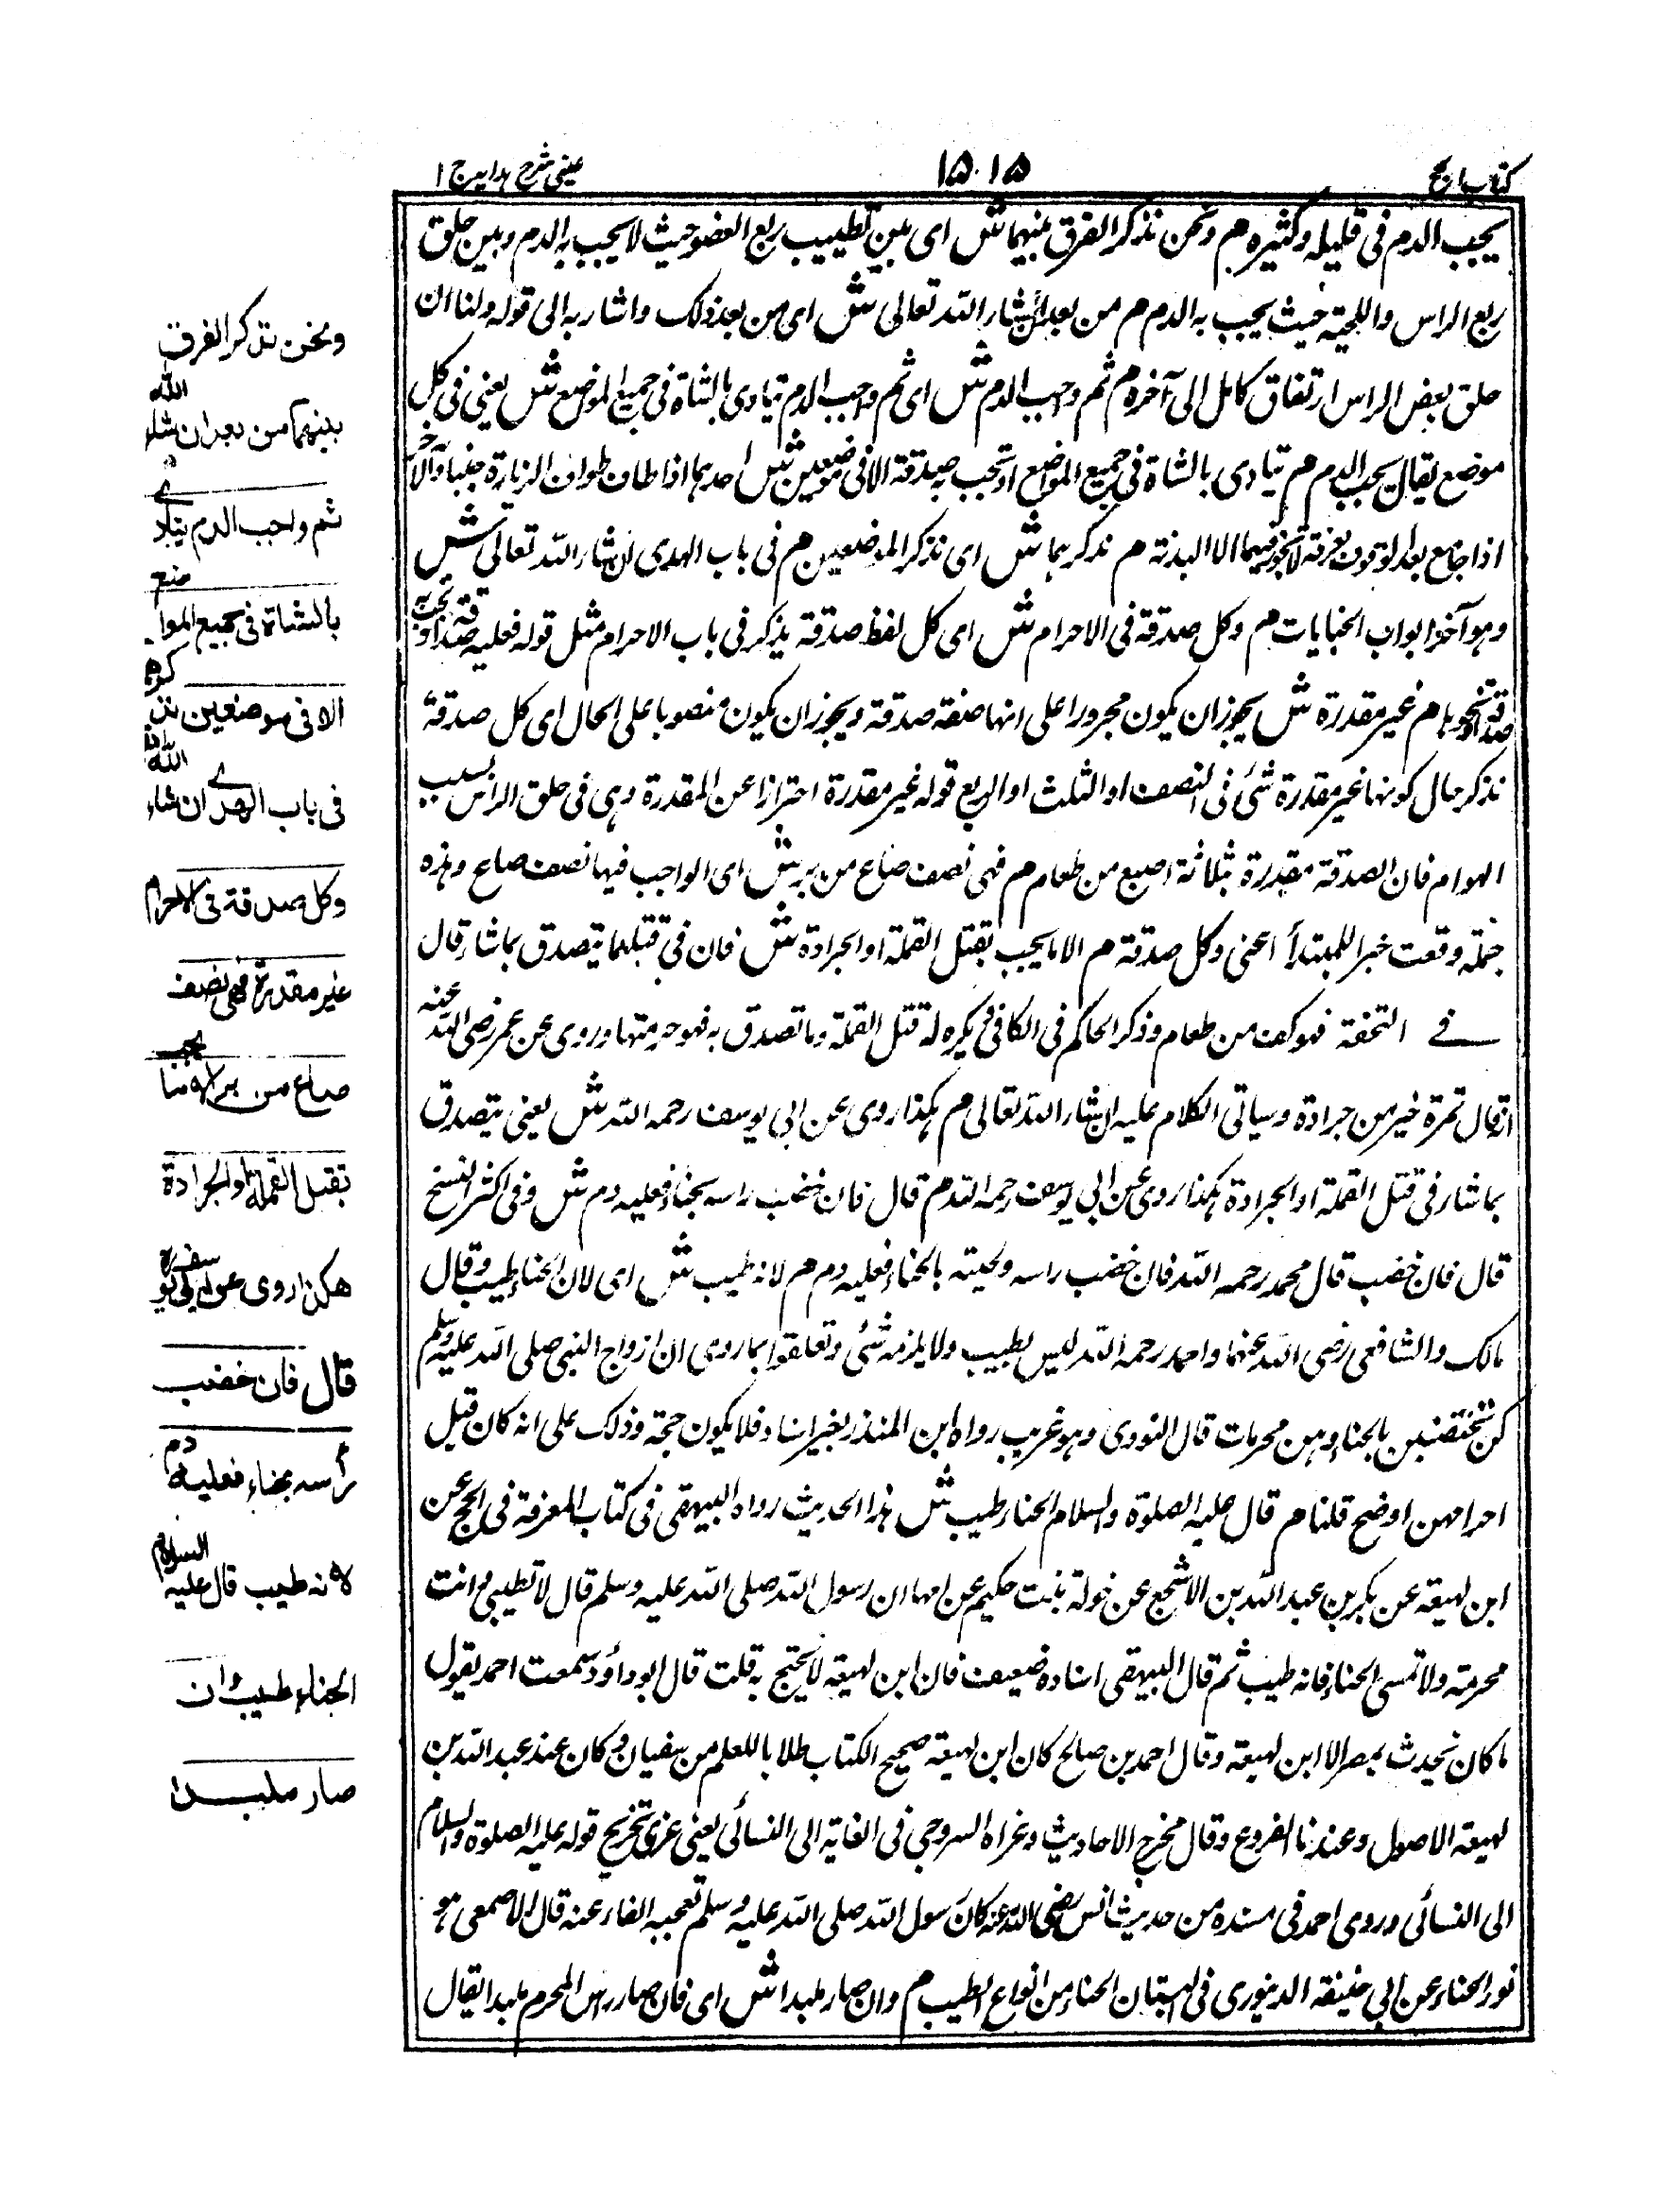 كتاب الحج
١٥١٥
عینی شرح ہدایہ ج ١
يجب الدم فى قليله وكثيره م ونحن نذكر الفرق بينهما ش اى بين تطييب ربع العضو حيث لا يجب به الدم وبين حلق
ربع الراس واللحية حيث يجب به الدم م من بعد ان شاء الله تعالى ش اى من بعد ذلك واشار به الى قوله ولنا ان
حلق بعض الراس ارتفاق كامل الى آخره م ثم واجب الدم ش اى ثم واجب الدم يتادى بالشاة فى جميع المواضع ش يعنى فى كل
موضع يقال يجب الدم م يتادى بالشاة فى جميع المواضع او تجب به صدقة الا فى موضعين ش احدهما اذا طاف طواف الزيارة جنبا والآخر
اذا جامع بعد الوقوف بعرفة لا يجوز فيهما الا البدنة م نذكرهما ش اى نذكر الموضعين م فى باب الهدى ان شاء الله تعالى ش
وهو آخر ابواب الجنايات م وكل صدقة فى الاحرام ش اى كل لفظ صدقة يذكر فى باب الاحرام مثل قوله فعليه صدقة او تجب به
صدقة او نحوها م غير مقدرة ش يجوز ان يكون مجرورا على انها صفة صدقة ويجوز ان يكون منصوبا على الحال اى كل صدقة
نذكر حال كونها غير مقدرة شئ فى النصف او الثلث او الربع قوله غير مقدرة احترازا عن المقدرة وهى فى حلق الراس بسبب
الهوام فان الصدقة مقدرة بثلاثة اصبع من طعام م فهى نصف صاع من بر ش اى الواجب فيها نصف صاع وهذه
جملة وقعت خبرا للمبتدأ اعنى وكل صدقة م الا ما يجب بقتل القملة او الجرادة ش فان فى قتلهما يتصدق بما شاء قال
فے التحفة فهو كف من طعام وذكر الحاكم فى الكافى يكره له قتل القملة وما تصدق به فهو خير منها وروى عن عمر رضى الله عنه
انه قال تمرة خير من جرادة وسياتى الكلام عليه ان شاء الله تعالى م هكذا روى عن ابى يوسف رحمه الله ش يعنى يتصدق
بما شاء فى قتل القملة او الجرادة هكذا روى عن ابى يوسف رحمه الله م قال فان خضب راسه بحناء فعليه دم ش وفى اكثر النسخ
قال فان خضب قال محمد رحمه الله فان خضب راسه ولحيته بالحناء فعليه دم م لانه طيب ش اى لان الحناء طيب وقال
مالك والشافعى رضى الله عنهما واحمد رحمه الله ليس بطيب ولا يلزمه شئ وتعلقوا بما روى ان ازواج النبى صلى الله عليه وسلم
كن يختضبن بالحناء وهن محرمات قال النووى وهو غريب رواه ابن المنذر بغير اسناد فلا يكون حجة وذلك على انه كان قبل
احرامهن اوضح قلنا م قال عليه الصلوة والسلام الحناء طيب ش هذا الحديث رواه البيهقى فى كتاب المعرفة فى الحج عن
ابن لهيعة عن بكير بن عبد الله بن الاشجع عن خولة بنت حكيم عن امها ان رسول الله صلى الله عليه وسلم قال لا تطيبى وانت
محرمة ولا تمسى الحناء فانه طيب ثم قال البيهقى اسناده ضعيف فان ابن لهيعة لا يحتج به قلت قال ابو داؤد سمعت احمد يقول
ما كان نحدث بمصر الا ابن لهيعة وقال احمد بن صالح كان ابن لهيعة صحيح الكتاب طلابا للعلم من سفيان كان عند عبد الله بن
لهيعة الاصول وعندنا الفروع وقال مخرج الاحاديث وعزاه السروجى فى الغاية الى النسائى يعنى عزى تخريج قوله عليه الصلوة والسلام
الى النسائى وروى احمد فى مسنده من حديث انس رضى الله عنه كان رسول الله صلى الله عليه وسلم تعجبه الفاغية قال الاصمعى هو
نور الحناء عن ابى حنيفة الدينورى فى البستان الحناء من انواع الطيب م وان صار ملبدا ش اى فان صار راس المحرم ملبدا يقال
ونحن نذكر الفرق
بينهما من بعد ان شاء الله
ثم واجب الدم يتادے
بالشاة فى جميع المواضع
الا فى موضعين نذكرهما
فى باب الهدے ان شاء الله
وكل صدقة فى الاحرام
غير مقدرة فهى نصف
صاع من بر الا ما يجب
بقتل القملة او الجرادة
هكذا روى عن ابى يوسف
قال فان خضب
رأسه بحناء فعليه دم
لانه طيب قال عليه السلام
الحناء طيب وان
صار ملبدا